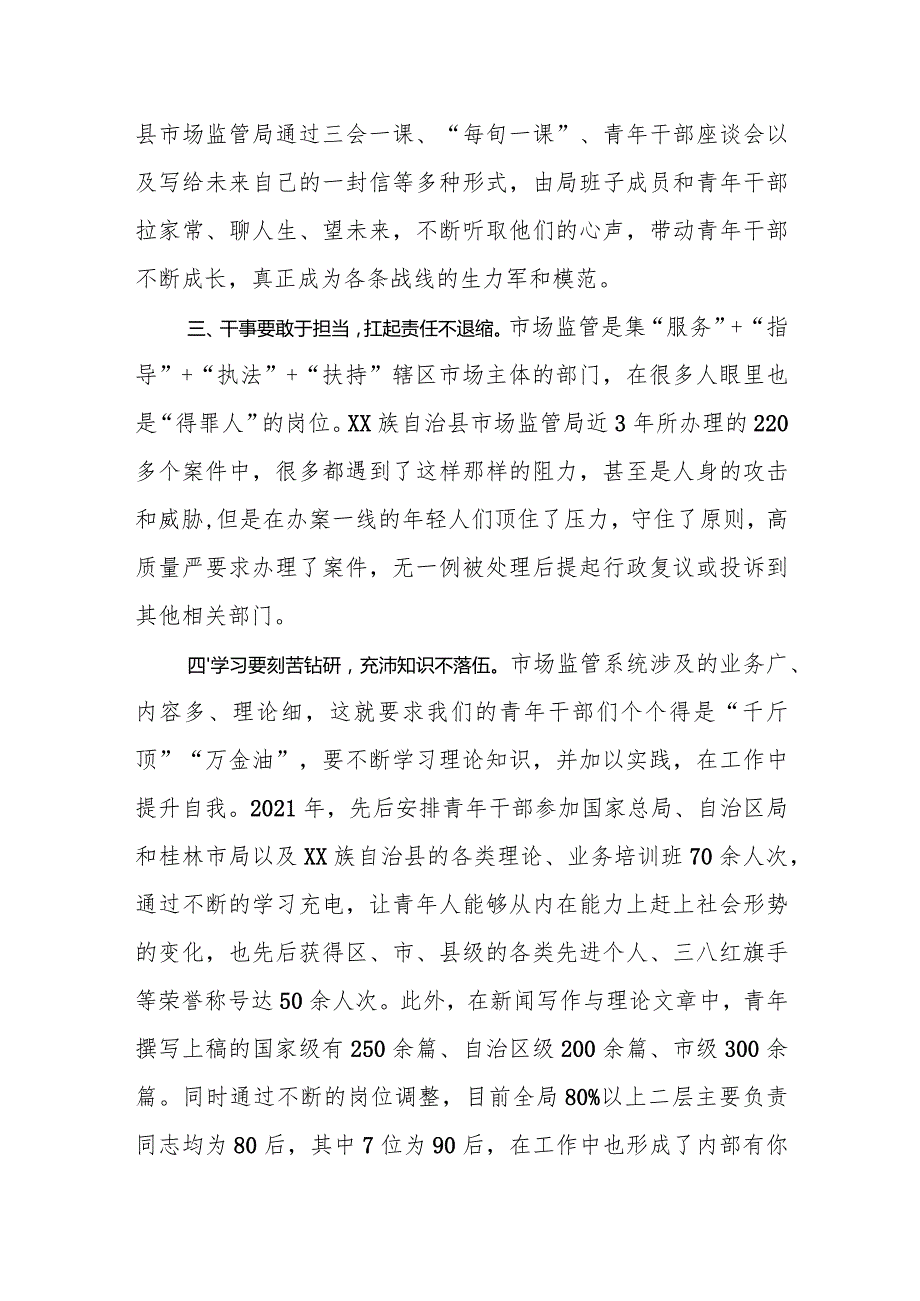 县市场监管局通过三会一课、“每旬一课”、青年干部座谈会以
及写给未来自己的一封信等多种形式，由局班子成员和青年干部
拉家常、聊人生、望未来，不断听取他们的心声，带动青年干部
不断成长，真正成为各条战线的生力军和模范。
三、干事要敢于担当，扛起责任不退缩。市场监管是集“服务”+“指
导”+“执法”+“扶持”辖区市场主体的部门，在很多人眼里也
是“得罪人”的岗位。XX族自治县市场监管局近3年所办理的220
多个案件中，很多都遇到了这样那样的阻力，甚至是人身的攻击
和威胁,但是在办案一线的年轻人们顶住了压力，守住了原则，高
质量严要求办理了案件，无一例被处理后提起行政复议或投诉到
其他相关部门。
四'学习要刻苦钻研，充沛知识不落伍。市场监管系统涉及的业务广、
内容多、理论细，这就要求我们的青年干部们个个得是“千斤
顶”“万金油”，要不断学习理论知识，并加以实践，在工作中
提升自我。2021年，先后安排青年干部参加国家总局、自治区局
和桂林市局以及XX族自治县的各类理论、业务培训班70余人次，
通过不断的学习充电，让青年人能够从内在能力上赶上社会形势
的变化，也先后获得区、市、县级的各类先进个人、三八红旗手
等荣誉称号达50余人次。此外，在新闻写作与理论文章中，青年
撰写上稿的国家级有250余篇、自治区级200余篇、市级300余
篇。同时通过不断的岗位调整，目前全局80%以上二层主要负责
同志均为80后，其中7位为90后，在工作中也形成了内部有你